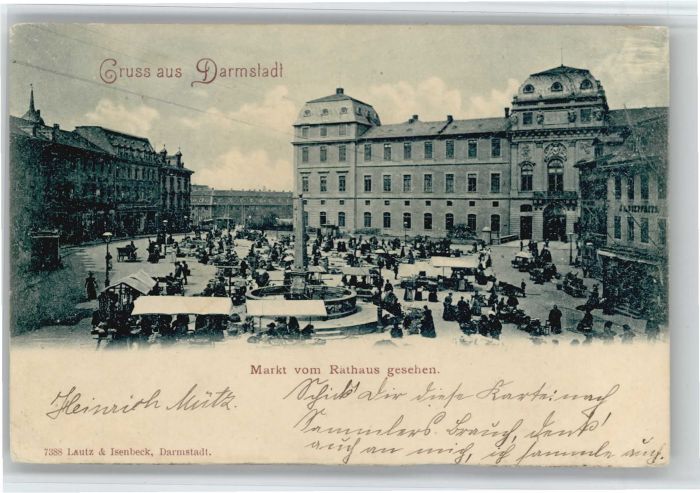 Gruss aus Darmstadt
Markt vom Rathaus gesehen.
Heinrich Mütz.
Schick' Dir diese Karte nach
Sammlers Brauch, denk'
auch an mich, ich sammle auch.
7388 Lautz & Isenbeck, Darmstadt.